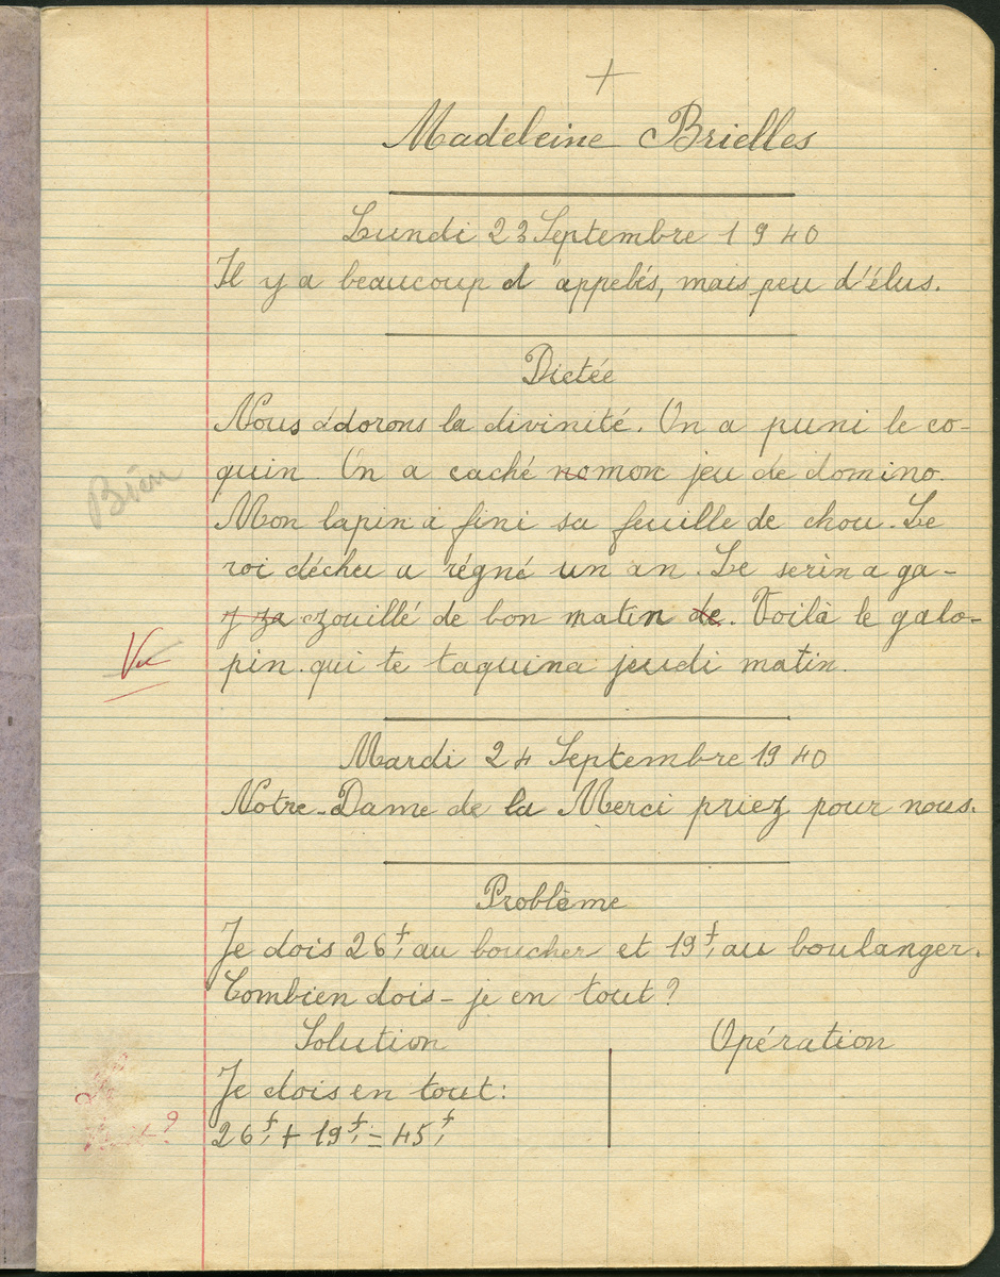 +
Madeleine Brielles
Lundi 23 Septembre 1940
Il y a beaucoup d'appelés, mais peu d'élus.
Dictée
Nous adorons la divinité. On a puni le co-
quin. On a caché no mon jeu de domino.
Bien
Mon lapin a fini sa feuille de chou. Le
roi déchu a régné un an. Le serin a ga-
z za zouillé de bon matin de. Voilà le galo-
Vu
pin qui te taquina jeudi matin.
Mardi 24 Septembre 1940
Notre-Dame de la Merci priez pour nous.
Problème
Je dois 26f, au boucher et 19f, au boulanger.
Combien dois-je en tout?
Solution
Opération
Je dois en tout:
?
26f, + 19f, = 45f,